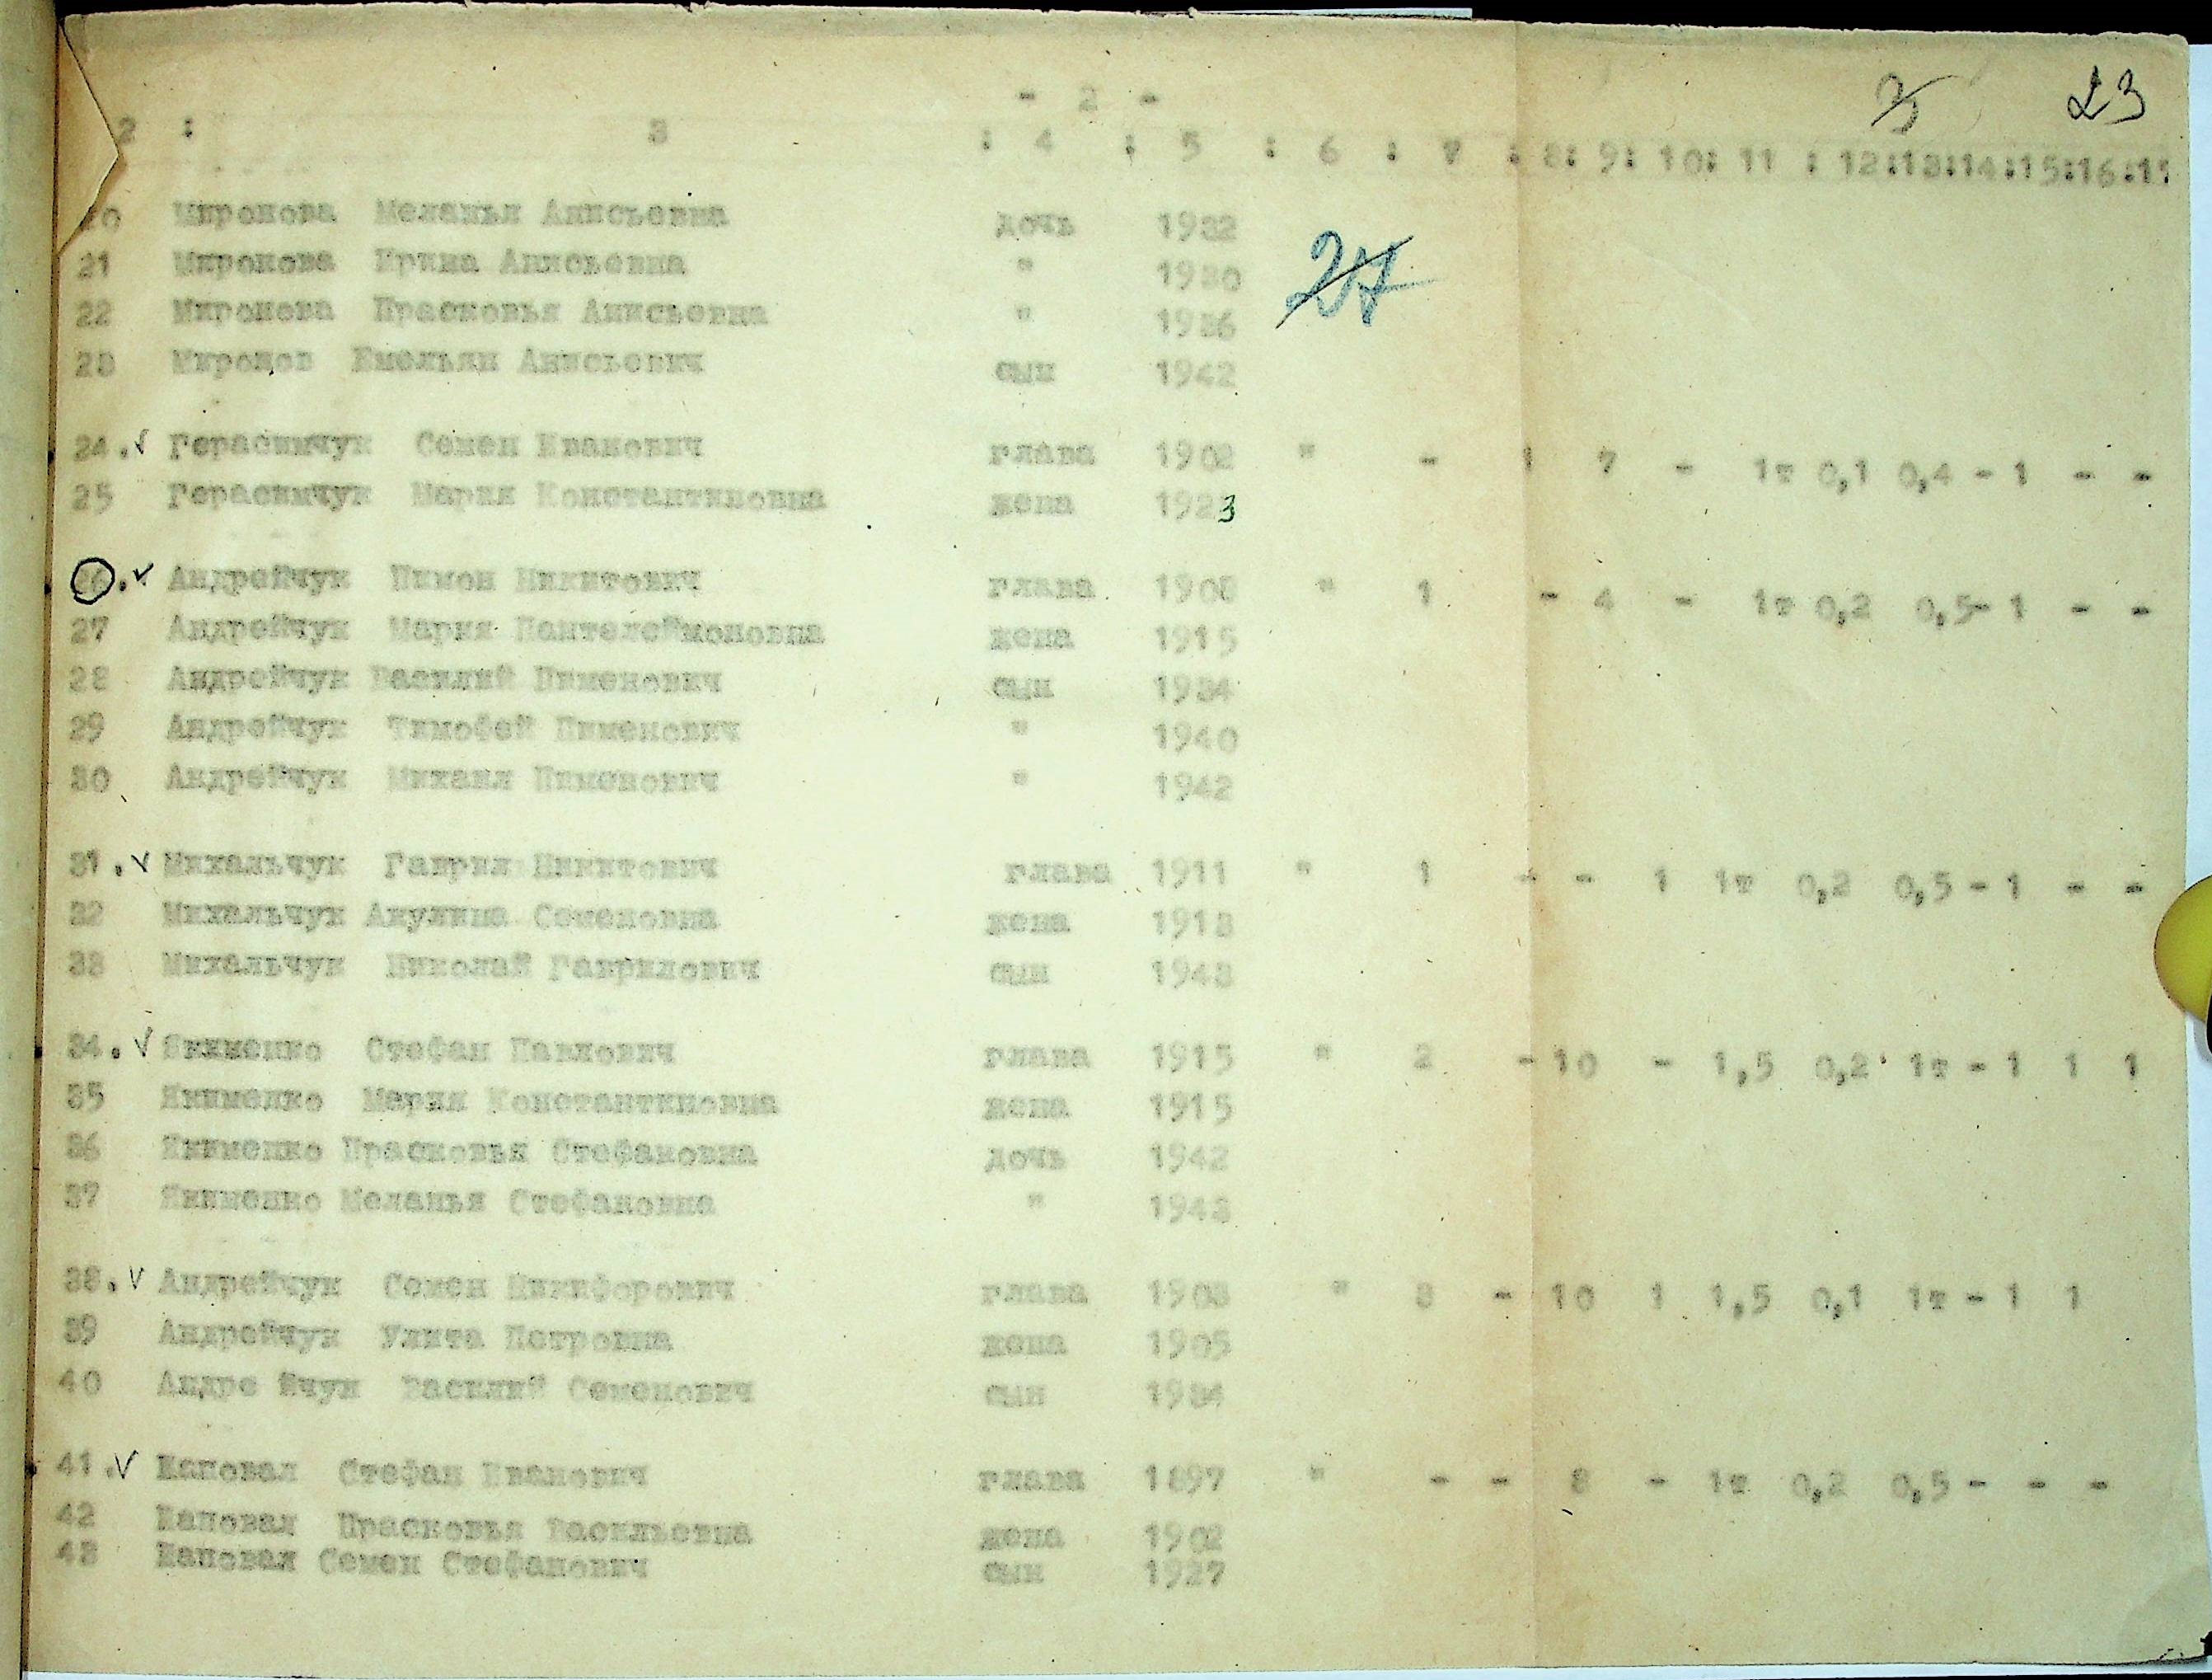 - 2 -
3 23
2 : 3 : 4 : 5 : 6 : 7 : 8: 9: 10: 11 : 12:13:14:15:16:17
20 Миронова Меланья Анисьевна дочь 1932
21 Миронова Ирина Анисьевна " 1930
27
22 Миронова Прасковья Анисьевна " 1936
23 Миронов Емельян Анисьевич сын 1942
24. Герасимчук Семен Иванович глава 1902 " - 1 7 - 1т 0,1 0,4 - 1 - -
25 Герасимчук Мария Константиновна жена 1923
26. Андрейчук Пимон Никитович глава 1908 " 1 - 4 - 1т 0,2 0,5- 1 - -
27 Андрейчук Мария Пантелеймоновна жена 1915
28 Андрейчук Василий Пименович сын 1934
29 Андрейчук Тимофей Пименович " 1940
30 Андрейчук Михаил Пименович " 1942
31. Михальчук Гаврил Никитович глава 1911 " 1 - - 1 1т 0,2 0,5 - 1 - -
32 Михальчук Акулина Семеновна жена 1918
33 Михальчук Николай Гаврилович сын 1943
34. Якименко Стефан Павлович глава 1915 " 2 - 10 - 1,5 0,2 1т - 1 1 1
35 Якименко Мария Константиновна жена 1915
36 Якименко Прасковья Стефановна дочь 1942
37 Якименко Меланья Стефановна " 1943
38. Андрейчук Семен Никифорович глава 1903 " 3 - 10 1 1,5 0,1 1т - 1 1
39 Андрейчук Улита Петровна жена 1905
40 Андре йчук Василий Семенович сын 1934
41. Каповал Стефан Иванович глава 1897 " - - 3 - 1т 0,2 0,5 - - -
42 Каповал Прасковья Васильевна жена 1902
43 Каповал Семен Стефанович сын 1927